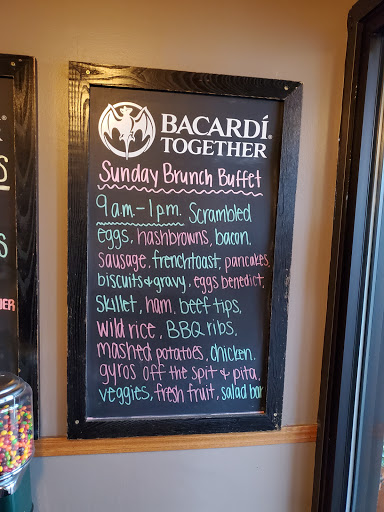 BACARDÍ®
TOGETHER
Sunday Brunch Buffet
9am.-1pm. Scrambled
eggs, hashbrowns, bacon.
sausage, french toast, pancakes,
biscuits & gravy, eggs benedict,
skillet, ham, beef tips,
wild rice, BBQ ribs,
mashed potatoes, chicken.
gyros off the spit & pita,
veggies, fresh fruit, salad bar